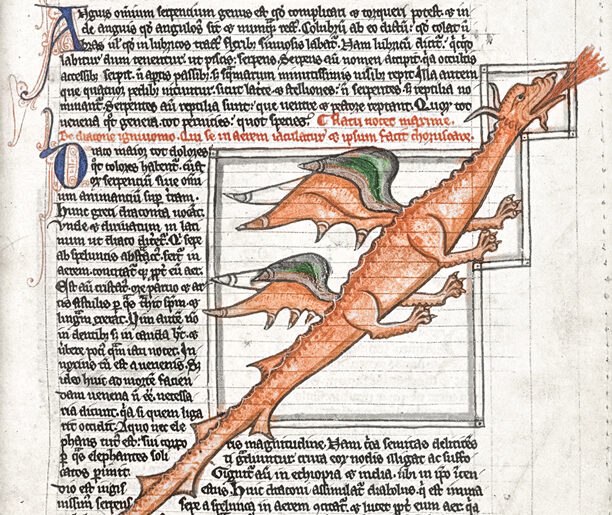 Anguis omnium serpencium genus est quod complicari et torqueri potest et in
de anguis quod angulosus sit et numquam rectus. Colubrum ab eo dictum quod colat
umbras vel quod in lubricos tractus flexibus sinuosis labatur. Nam lubricum dicitur quicquid
labitur dum tenetur ut piscis serpens. Serpens autem nomen accepit quia occultis
accessibus serpit non apertis passibus sed squamarum minutissimis nisibus repit. Illa autem
que quatuor pedibus nituntur sicut lacerte et stelliones non serpentes sed reptilia no
minantur. Serpentes autem reptilia sunt quia ventre et pectore reptant. Quorum tot
venena quot genera tot pernicies quot species.
De dracone ignivomo. Qui se in aerem iaculatur et ipsum facit choruscare.
Draco maior tot dolores
quot colores habentur cunctorum
serpentium sive omnium
animancium super terram.
Hunc greci draconta vocant
unde et dirivatum in lati
num ut draco diceretur. Qui sepe
ab speluncis abstractus fertur in
aerem concitaturque propter eum aer.
Est autem cristatus ore parvo et ar
tis fistulis per quas trahit spiritum et
linguam exerat. Vim autem non
in dentibus sed in cauda habet et
verbere pocius quam ictu nocet. In
noxius autem est a venenis. Sed
ideo huic ad mortem facien
dam venena non esse necessa
ria dicunt quia si quem liga
rit occidit. A quo nec ele
phans tutus est sui corporis magnitudine. Nam circa semitas delitescens
per quas elephantes soliti gradiuntur crura eorum nodis illigat ac suffo
catos perimit. Gignitur autem in ethiopia et india ubi in ipso incen
dio est iugis estus. Huic draconi assimilatur diabolus qui est immanis
simus serpens sepe a spelunca in aerem concitatur et lucet propter eum aer quia